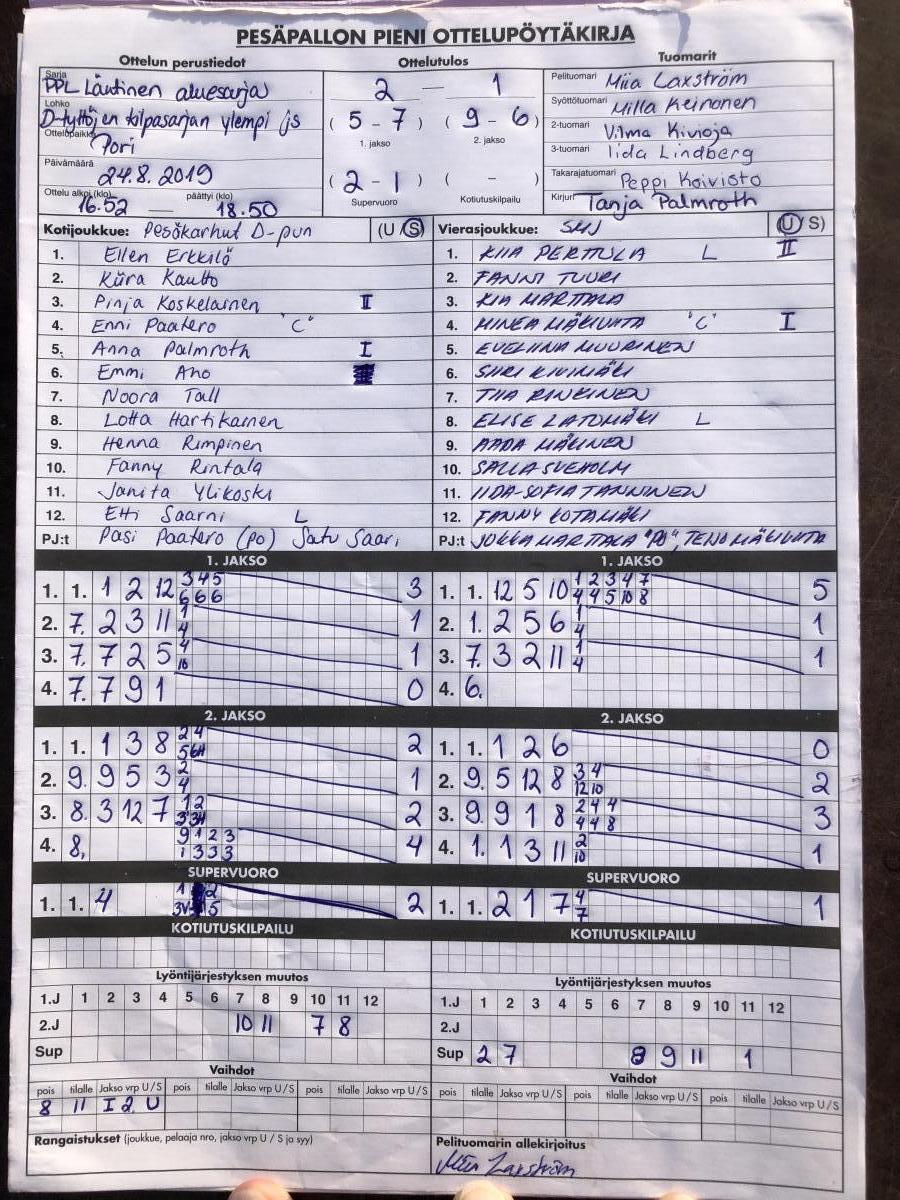 PESÄPALLON PIENI OTTELUPÖYTÄKIRJA
Ottelun perustiedot
Sarja PPL Läntinen aluesarja
Lohko D-tyttöjen kilpasarjan ylempi js
Ottelupaikka Pori
Päivämäärä 24.8. 2019
Ottelu alkoi (klo) 16.52 — päättyi (klo) 18.50
Ottelutulos
2 — 1
( 5 - 7 ) ( 9 - 6 )
1. jakso 2. jakso
( 2 - 1 ) ( - )
Supervuoro Kotiutuskilpailu
Tuomarit
Pelituomari Miia Laxström
Syöttötuomari Milla Keinonen
2-tuomari Vilma Kivioja
3-tuomari Iida Lindberg
Takarajatuomari Peppi Koivisto
Kirjuri Tanja Palmroth
Kotijoukkue: Pesäkarhut D-pun (U/S)
1. Ellen Erkkilä
2. Kiira Kautto
3. Pinja Koskelainen II
4. Enni Paatero "C"
5. Anna Palmroth I
6. Emmi Aho
7. Noora Tall
8. Lotta Hartikainen
9. Henna Rimpinen
10. Fanny Rintala
11. Janita Ylikoski
12. Etti Saarni L
PJ:t Pasi Paatero (PO) Satu Saari
Vierasjoukkue: SMJ (U/S)
1. KIIA PERTTULA L II
2. FANNI TUURI
3. KIA MARTTALA
4. MINEA MÄKIVIITA "C" I
5. EVELIINA MUURINEN
6. SIIRI KIVIMÄKI
7. TIIA RINKINEN
8. ELISE LATOMÄKI L
9. AADA MÄKINEN
10. SALLA SVEHOLM
11. IIDA-SOFIA TANNINEN
12. FANNY KOTAMÄKI
PJ:t JUKKA MARTTALA "PO", TENO MÄKIVIITA
1. JAKSO
1. 1. 1 2 12 3 4 5 3
6 6 6
2. 7. 2 3 11 1 1
4
3. 7. 7 2 5 4 1
10
4. 7. 7 9 1 0
1. JAKSO
1. 1. 12 5 10 1 2 3 4 7 5
4 4 5 10 8
2. 1. 2 5 6 1 1
4
3. 7. 3 2 11 1 1
4
4. 6.
2. JAKSO
1. 1. 1 3 8 2 4 2
2. 9. 9 5 3 2 1
4
3. 8. 3 12 7 1 2 2
4. 8. 9 1 2 3 4
1 3 3 3
2. JAKSO
1. 1. 1 2 6 0
2. 9. 5 12 8 3 4 2
12 10
3. 9. 9 1 8 2 4 4 3
4 4 8
4. 1. 1 3 11 2 1
10
SUPERVUORO
1. 1. 4 1 2 2
SUPERVUORO
1. 1. 2 1 7 4 1
7
KOTIUTUSKILPAILU
KOTIUTUSKILPAILU
Lyöntijärjestyksen muutos
1.J 1 2 3 4 5 6 7 8 9 10 11 12
2.J 10 11 7 8
Sup
Lyöntijärjestyksen muutos
1.J 1 2 3 4 5 6 7 8 9 10 11 12
2.J
Sup 2 7 8 9 11 1
Vaihdot
pois tilalle Jakso vrp U/S pois tilalle Jakso vrp U/S pois tilalle Jakso vrp U/S
8 11 I 2. U
Vaihdot
pois tilalle Jakso vrp U/S pois tilalle Jakso vrp U/S pois tilalle Jakso vrp U/S
Rangaistukset (joukkue, pelaaja nro, jakso vrp U / S ja syy)
Pelituomarin allekirjoitus
Miia Laxström